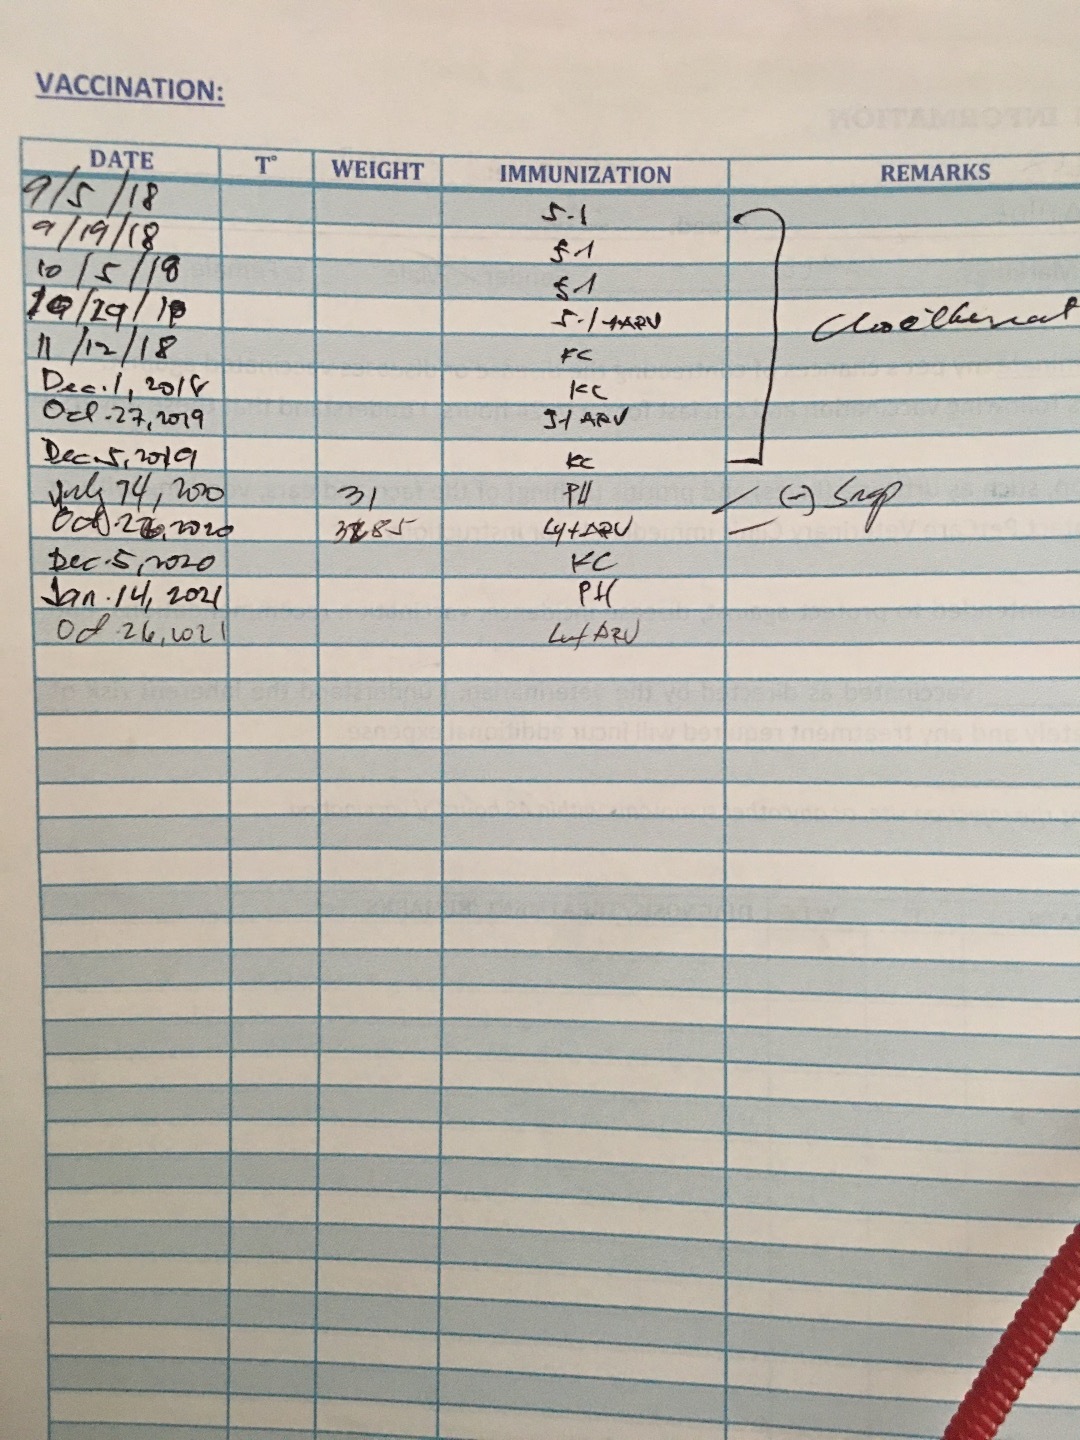 VACCINATION:
DATE T° WEIGHT IMMUNIZATION REMARKS
9/5/18 5-1
9/19/18 5-1
10/5/18 5-1
10/29/18 5-1+ARV
11/12/18 KC
Dec. 1, 2018 KC
Oct. 27, 2019 5-1 ARV
Dec. 5, 2019 KC
July 14, 2020 31 PH (-) Snap
Oct 26, 2020 4y+ARV
Dec. 5, 2020 KC
Jan. 14, 2021 PH
Oct 26, 2021 ARV